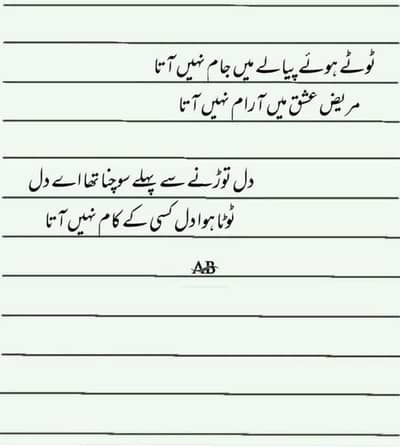 ٹوٹے ہوئے پیالے میں جام نہیں آتا
مریض عشق میں آرام نہیں آتا
دل توڑنے سے پہلے سوچنا تھا اے دل
ٹوٹا ہوا دل کسی کے کام نہیں آتا
AB